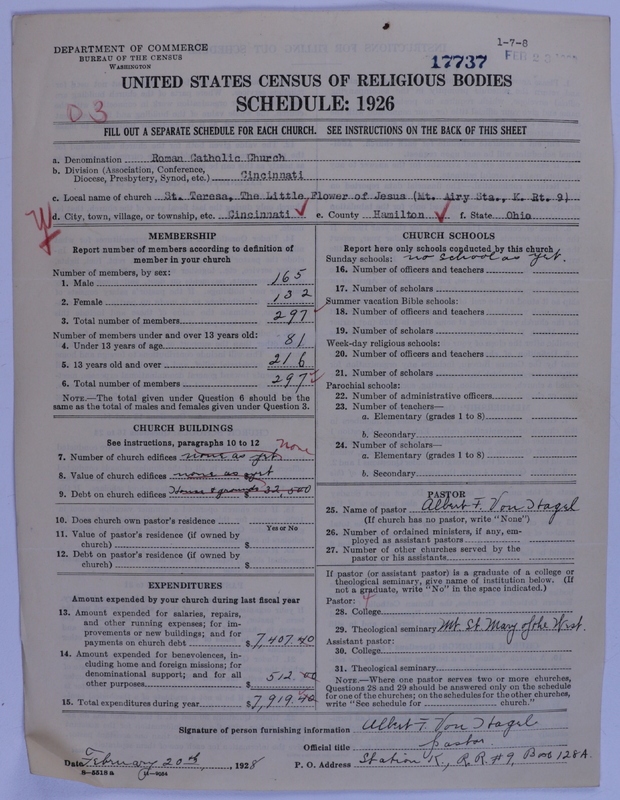 DEPARTMENT OF COMMERCE
BUREAU OF THE CENSUS
WASHINGTON
1-7-8
17737
FEB
UNITED STATES CENSUS OF RELIGIOUS BODIES
SCHEDULE: 1926
D3
FILL OUT A SEPARATE SCHEDULE FOR EACH CHURCH. SEE INSTRUCTIONS ON THE BACK OF THIS SHEET
a. Denomination Roman Catholic Church
b. Division (Association, Conference, Diocese, Presbytery, Synod, etc.) Cincinnati
c. Local name of church St. Teresa, The Little Flower of Jesus (Mt. Airy Sta., K. Rt. 9)
d. City, town, village, or township, etc. Cincinnati e. County Hamilton f. State Ohio
MEMBERSHIP
Report number of members according to definition of
member in your church
Number of members, by sex:
1. Male 165
2. Female 132
3. Total number of members 297
Number of members under and over 13 years old:
4. Under 13 years of age 81
5. 13 years old and over 216
6. Total number of members 297
NOTE.—The total given under Question 6 should be the
same as the total of males and females given under Question 3.
CHURCH BUILDINGS
See instructions, paragraphs 10 to 12
None
7. Number of church edifices none as yet
8. Value of church edifices none as yet
9. Debt on church edifices House & grounds 32,000
10. Does church own pastor's residence
Yes or No
11. Value of pastor's residence (if owned by
church) $
12. Debt on pastor's residence (if owned by
church) $
EXPENDITURES
Amount expended by your church during last fiscal year
13. Amount expended for salaries, repairs,
and other running expenses; for im-
provements or new buildings; and for
payments on church debt $ 7,407.40
14. Amount expended for benevolences, in-
cluding home and foreign missions; for
denominational support; and for all
other purposes 512.00
15. Total expenditures during year $ 7,919.40
CHURCH SCHOOLS
Report here only schools conducted by this church
Sunday schools: no school as yet.
16. Number of officers and teachers
17. Number of scholars
Summer vacation Bible schools:
18. Number of officers and teachers
19. Number of scholars
Week-day religious schools:
20. Number of officers and teachers
21. Number of scholars
Parochial schools:
22. Number of administrative officers
23. Number of teachers—
a. Elementary (grades 1 to 8)
b. Secondary
24. Number of scholars—
a. Elementary (grades 1 to 8)
b. Secondary
PASTOR
25. Name of pastor Albert F. Von Hagel
(If church has no pastor, write "None")
26. Number of ordained ministers, if any, em-
ployed as assistant pastors
27. Number of other churches served by the
pastor or his assistants
If pastor (or assistant pastor) is a graduate of a college or
theological seminary, give name of institution below. (If
not a graduate, write "No" in the space indicated.)
Pastor: 4
28. College
29. Theological seminary Mt. St. Mary of the West.
Assistant pastor:
30. College
31. Theological seminary
NOTE.—Where one pastor serves two or more churches,
Questions 28 and 29 should be answered only on the schedule
for one of the churches; on the schedules for the other churches,
write "See schedule for church."
Signature of person furnishing information Albert F. Von Hagel
Official title pastor
Date February 20th, 1928 P. O. Address Station K., R.R. #9, Box 128A.
8-5518 a 11-9564